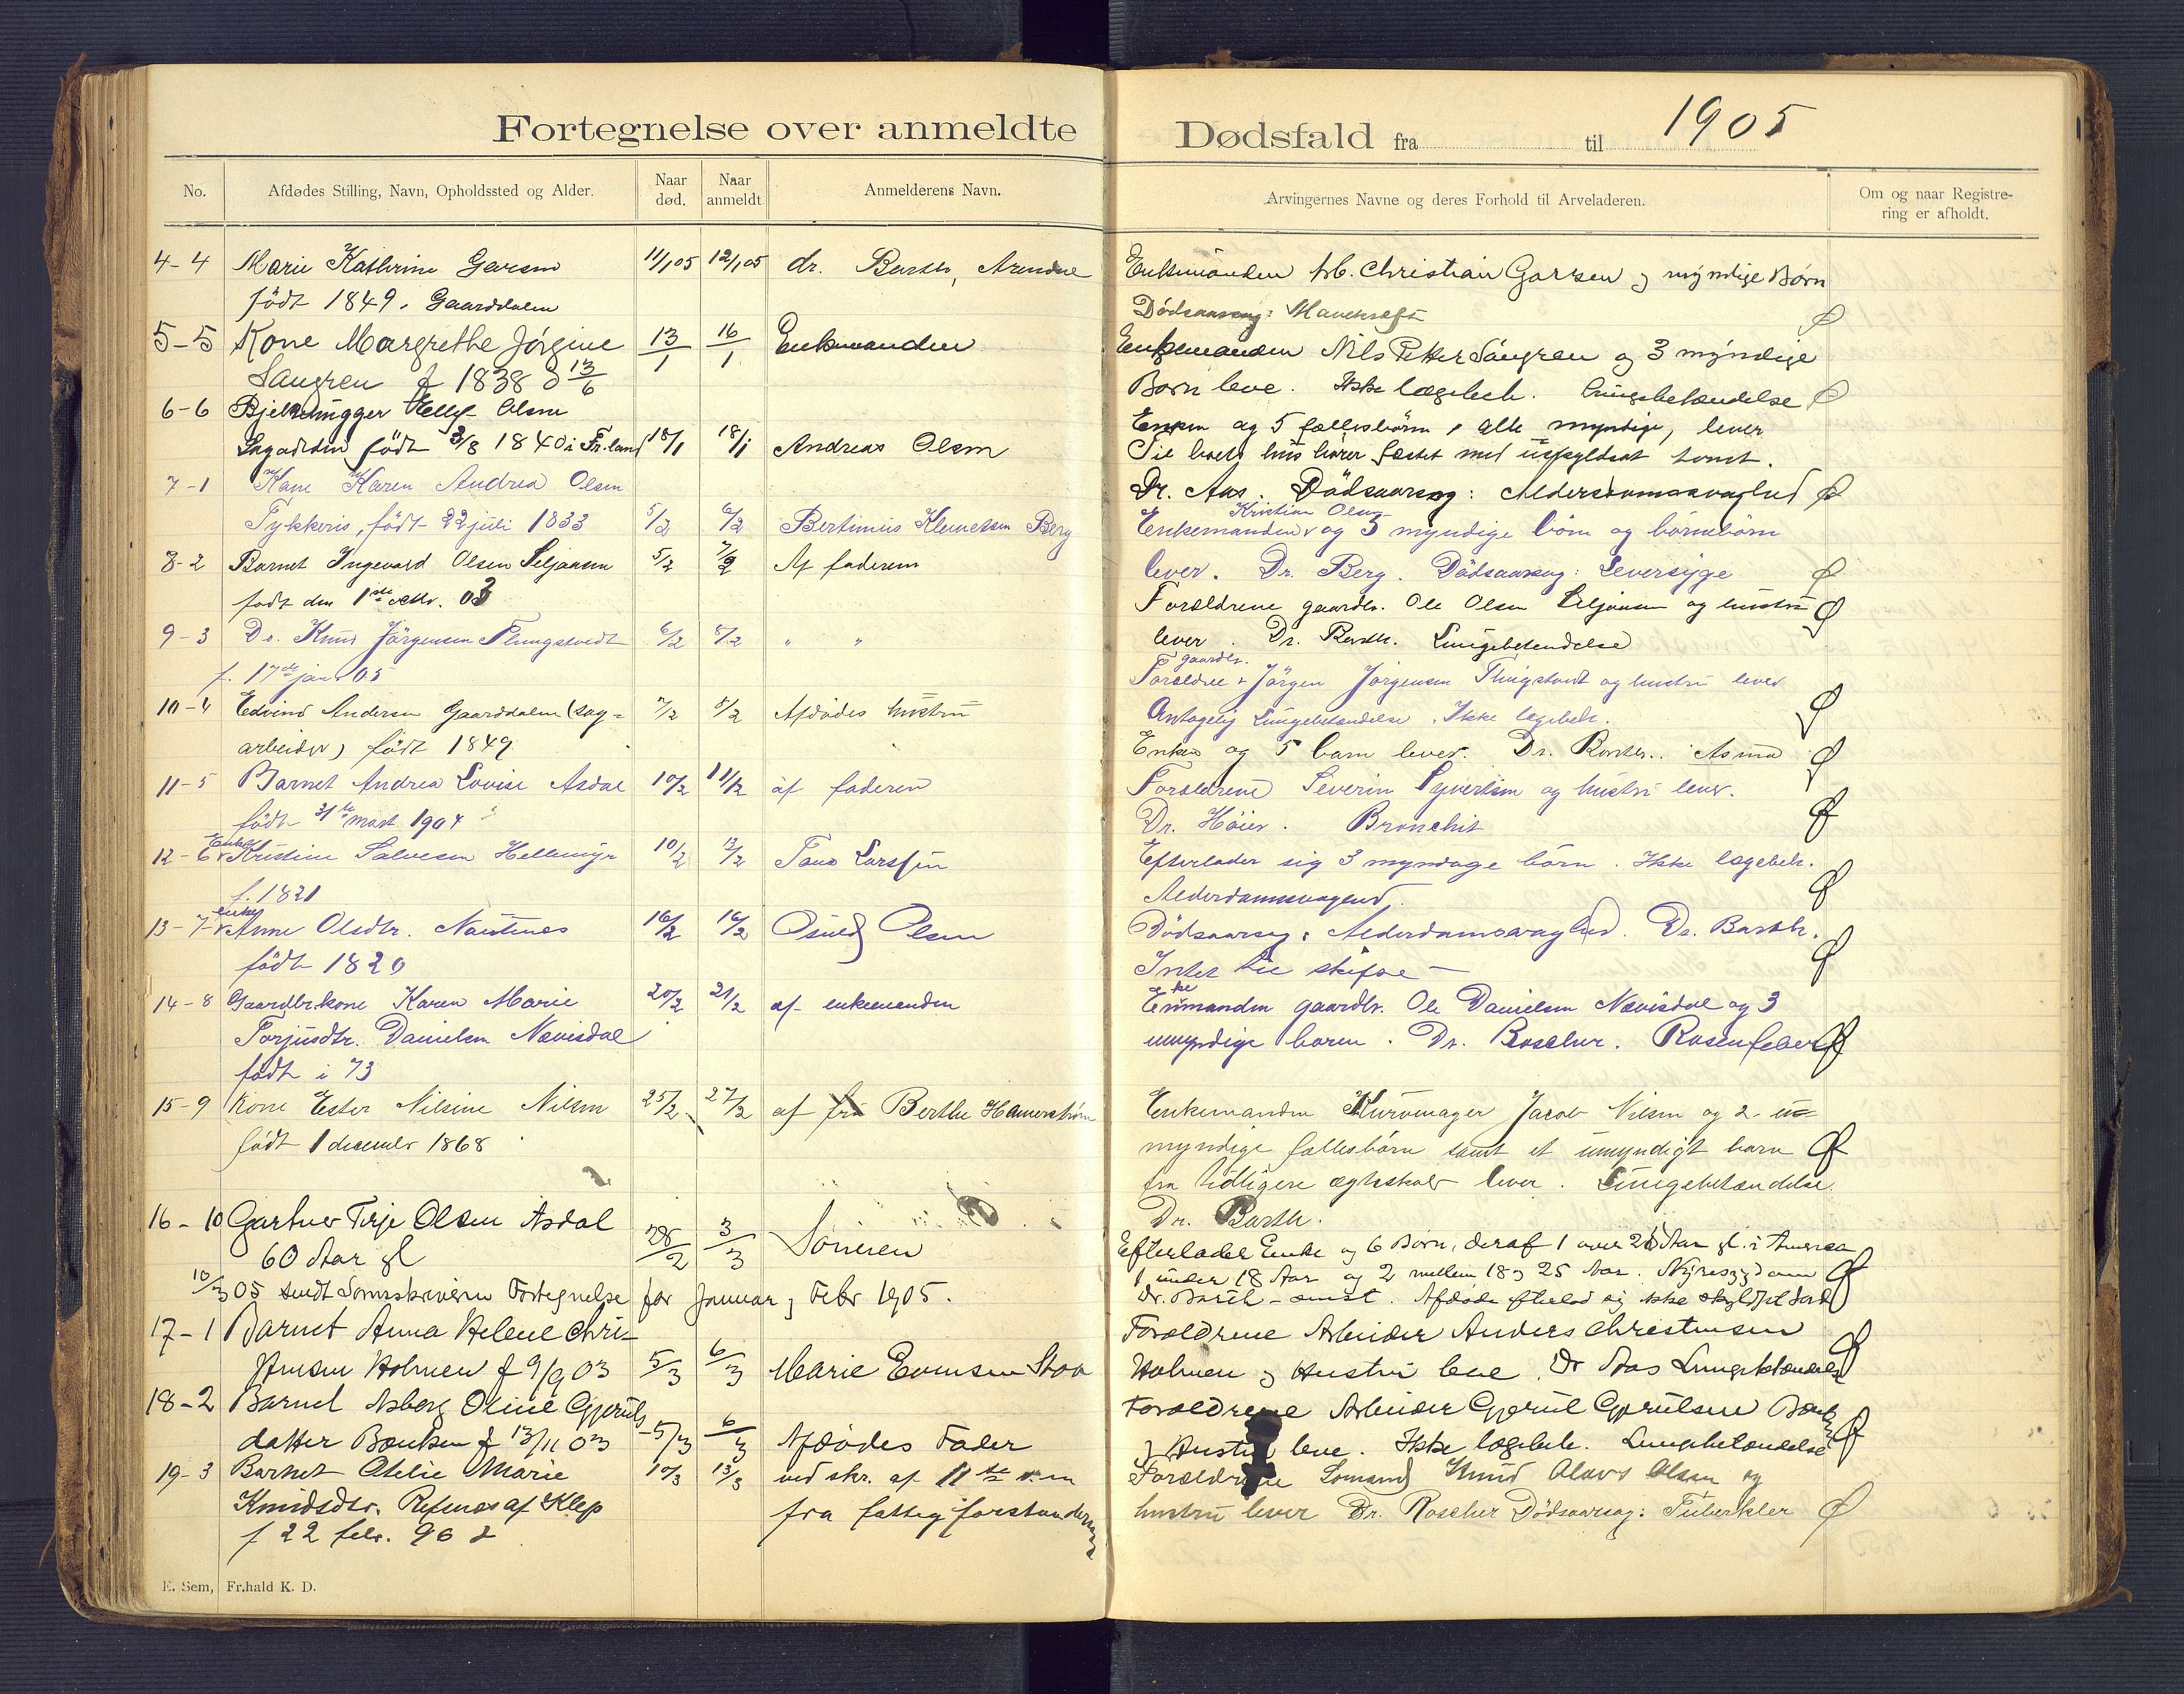 Fortegnelse over anmeldte Dødsfald fra til 1905
No. Afdødes Stilling, Navn, Opholdssted og Alder. Naar død. Naar anmeldt Anmelderens Navn.
Arvingernes Navne og deres Forhold til Arveladeren. Om og naar Registrering er afholdt.
4-4 Marie Kathrine Garsen 11/1 05 12/1 05 dr. Barth, Arendal
født 1849. Gaarddalen
5-5 Kone Margrethe Jørgine 13/1 16/1 Enkemanden
Sangren f 1838 d 13/6
6-6 Olsen
født 3/8 1840 i Fr.land 18/1 18/1 Andreas Olsen
7-1 Kone Karen Andrea Olsen
født 22 juli 1833 5/2 6/2 Bertinius Klemetsen Berg
8-2 Barnet Ingevard Olsen Seljaasen 5/2 7/2 Af faderen
født den 1ste 03
9-3 Do. Knud Jörgensen Flingstvedt 6/2 8/2 " "
f. 17de jan 05
10-4 Edvind Andersen Gaarddalen (sag-
arbeider) født 1849 7/2 8/2 Afdødes hustru
11-5 Barnet Andrea Lovise Asdal 10/2 11/2 af faderen
født 31te mars 1904
12-6 Enke Kristine Salvesen Hellemyr 10/2 13/2 Larssen
f. 1821
13-7 enke Anne Olsdtr. Nautenes 16/2 16/2 Osuld Olsen
født 1820
14-8 Gaardbr.kone Karen Marie 20/2 21/2 af enkemanden
Torjusdtr. Danielsen Nævisdal
født i 73
15-9 Kone Ester Nilsine Nilsen 25/2 27/2 af fru Berthe Hamerstrøm
født 1 december 1868
16-10 Gartner Terje Olsen Asdal
60 Aar gl 28/2 3/3 Sønnen
10/3 05 sendt Sorenskriveren Fortegnelse for Januar og Febr 1905.
17-1 Barnet Anna Helene Chri-
stensen Holmen f 9/9 03 5/3 6/3 Marie Evensen Stoa
18-2 Barnet Asborg Oline Gjeruls
datter Bænken f 13/11 03 5/3 6/3 Afdødes Fader
19-3 Barnet Otelie Marie 10/3 13/3 ved skr. af 11te
Knudsdtr. Refsnes af Klep fra fattigforstanderen
f 22 febr. 96
E. Sem, Fr.hald K. D.
Enkemanden Christian Garsen og myndige Børn
Dødsaarsag: Mavekræft
Enkemanden Nils Petter Sangren og 3 myndige
Børn leve. Ikke lægebeh. Lungebetændelse
Enken og 5 fællesbørn, alle myndige, lever
Til boets hus hører fæstet med uopfyldsat tomt.
Dr. Aas. Dödsaarsag: Alderdomssvaghed
Kristian Olsen
Enkemanden og 5 myndige börn og børnebörn
lever. Dr. Berg. Dödsaarsag: Leversyge
Forældrene gaardbr. Ole Olsen Seljaasen og hustru
lever. Dr. Barth. Lungebetændelse
gaardbr.
Forældre Jörgen Jörgensen Flingstvedt og hustru lever
Antagelig Lungebetændelse. Ikke lægebeh.
Enke og 5 barn lever. Dr. Asma
Forældrene Severin Syvertsen og hustru lever.
Dr. Høier. Bronchit
Efterlader sig 3 myndige börn. Ikke lægebeh.
Alderdomssvaghed.
Dödsaarsag: Alderdomssvaghed. Dr. Barth.
Intet til skifte
Enkemanden gaardbr. Ole Danielsen Nævisdal og 3
umyndige børn. Dr. Roscher. Rosenfeber
Enkemanden Kurvmager Jacob Nilsen og 2 u-
myndige fællesbörn samt et umyndigt barn
fra tidligere ægteskab lever. Lungebetændelse
Dr. Barth.
Efterlader Enke og 6 Børn, deraf 1 over 25 Aar gl. i Amerika
1 under 18 Aar og 2 mellem 18 og 25 Aar. Nyresygdom
Dr. Barth. Afdøde efterlod sig ikke
Forældrene Arbeider Anders Christensen
Holmen og Hustru leve. Dr Aas Lungebetændelse
Forældrene Arbeider Gjerul Gjerulsen Bænk
og Hustru leve. Ikke lægebeh. Lungebetændelse
Forældrene Sømand Knud Olavs Olsen og
hustru lever Dr. Roscher Dödsaarsag: Tuberkler